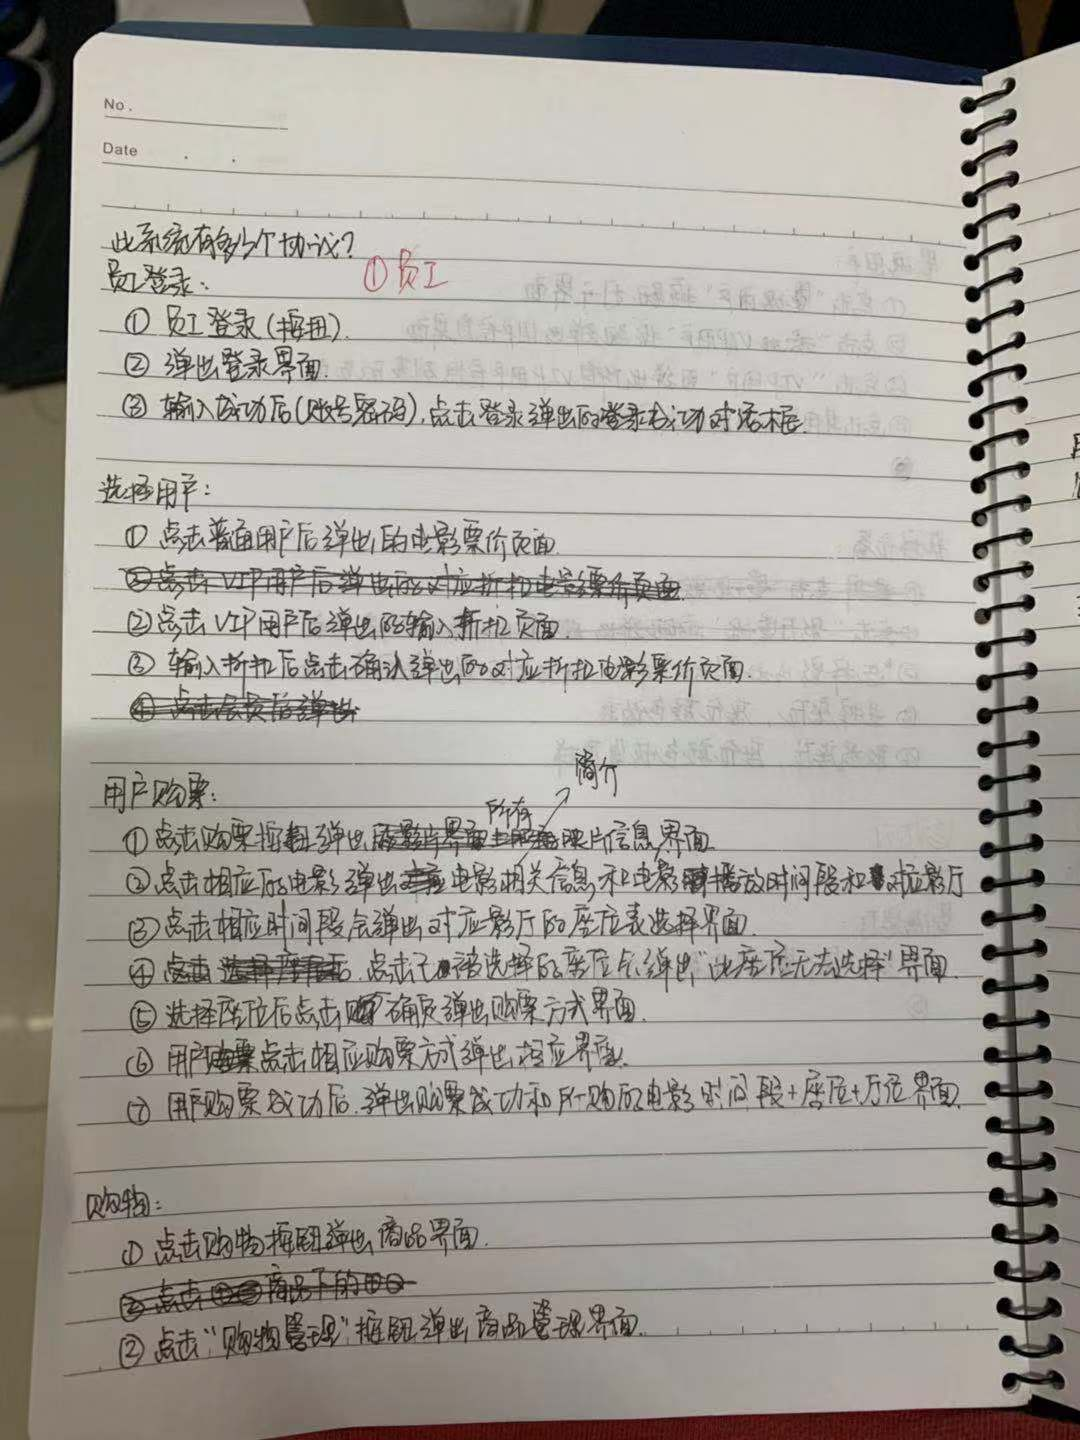 No.
Date
此系统有多少个协议?
员工登录: ①员工
① 员工登录(按扭).
② 弹出登录界面.
③ 输入成功后(账号密码),点击登录弹出的登录成功对话框.
选择用户:
① 点击普通用户后弹出的电影票价页面.
②点击VIP用户后弹出的对应折扣电影票价页面
②点击VIP用户后弹出的输入折扣页面.
③ 输入折扣后点击确认弹出的对应折扣电影票价页面.
④ 点击会员后弹出
简介
用户购票: 所有
①点击购票按钮弹出影片信息界面.
②点击相应的电影弹出电影相关信息和电影播放时间段和对应影厅
③点击相应时间段会弹出对应影厅的座位表选择界面.
④ 点击已被选择的座位会弹出“此座位无法选择”界面.
⑤ 选择座位后点击确定弹出购票方式界面.
⑥ 用户点击相应购票方式弹出相应界面.
⑦ 用户购票成功后,弹出购票成功和所购的电影时间段+座位+厅位界面.
购物:
① 点击购物按钮弹出商品界面.
②点击商品下的
②点击“购物管理”按钮弹出商品管理界面.